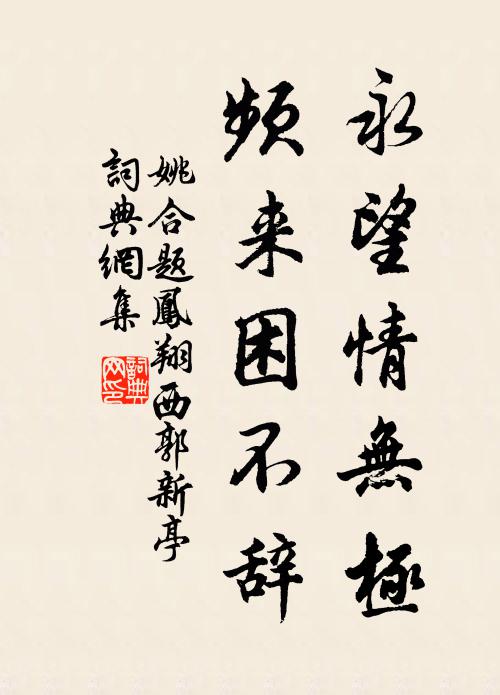 永望情無極
频来困不辞
姚合题鳳翔西郭新亭
詞典網集
詞典
网印